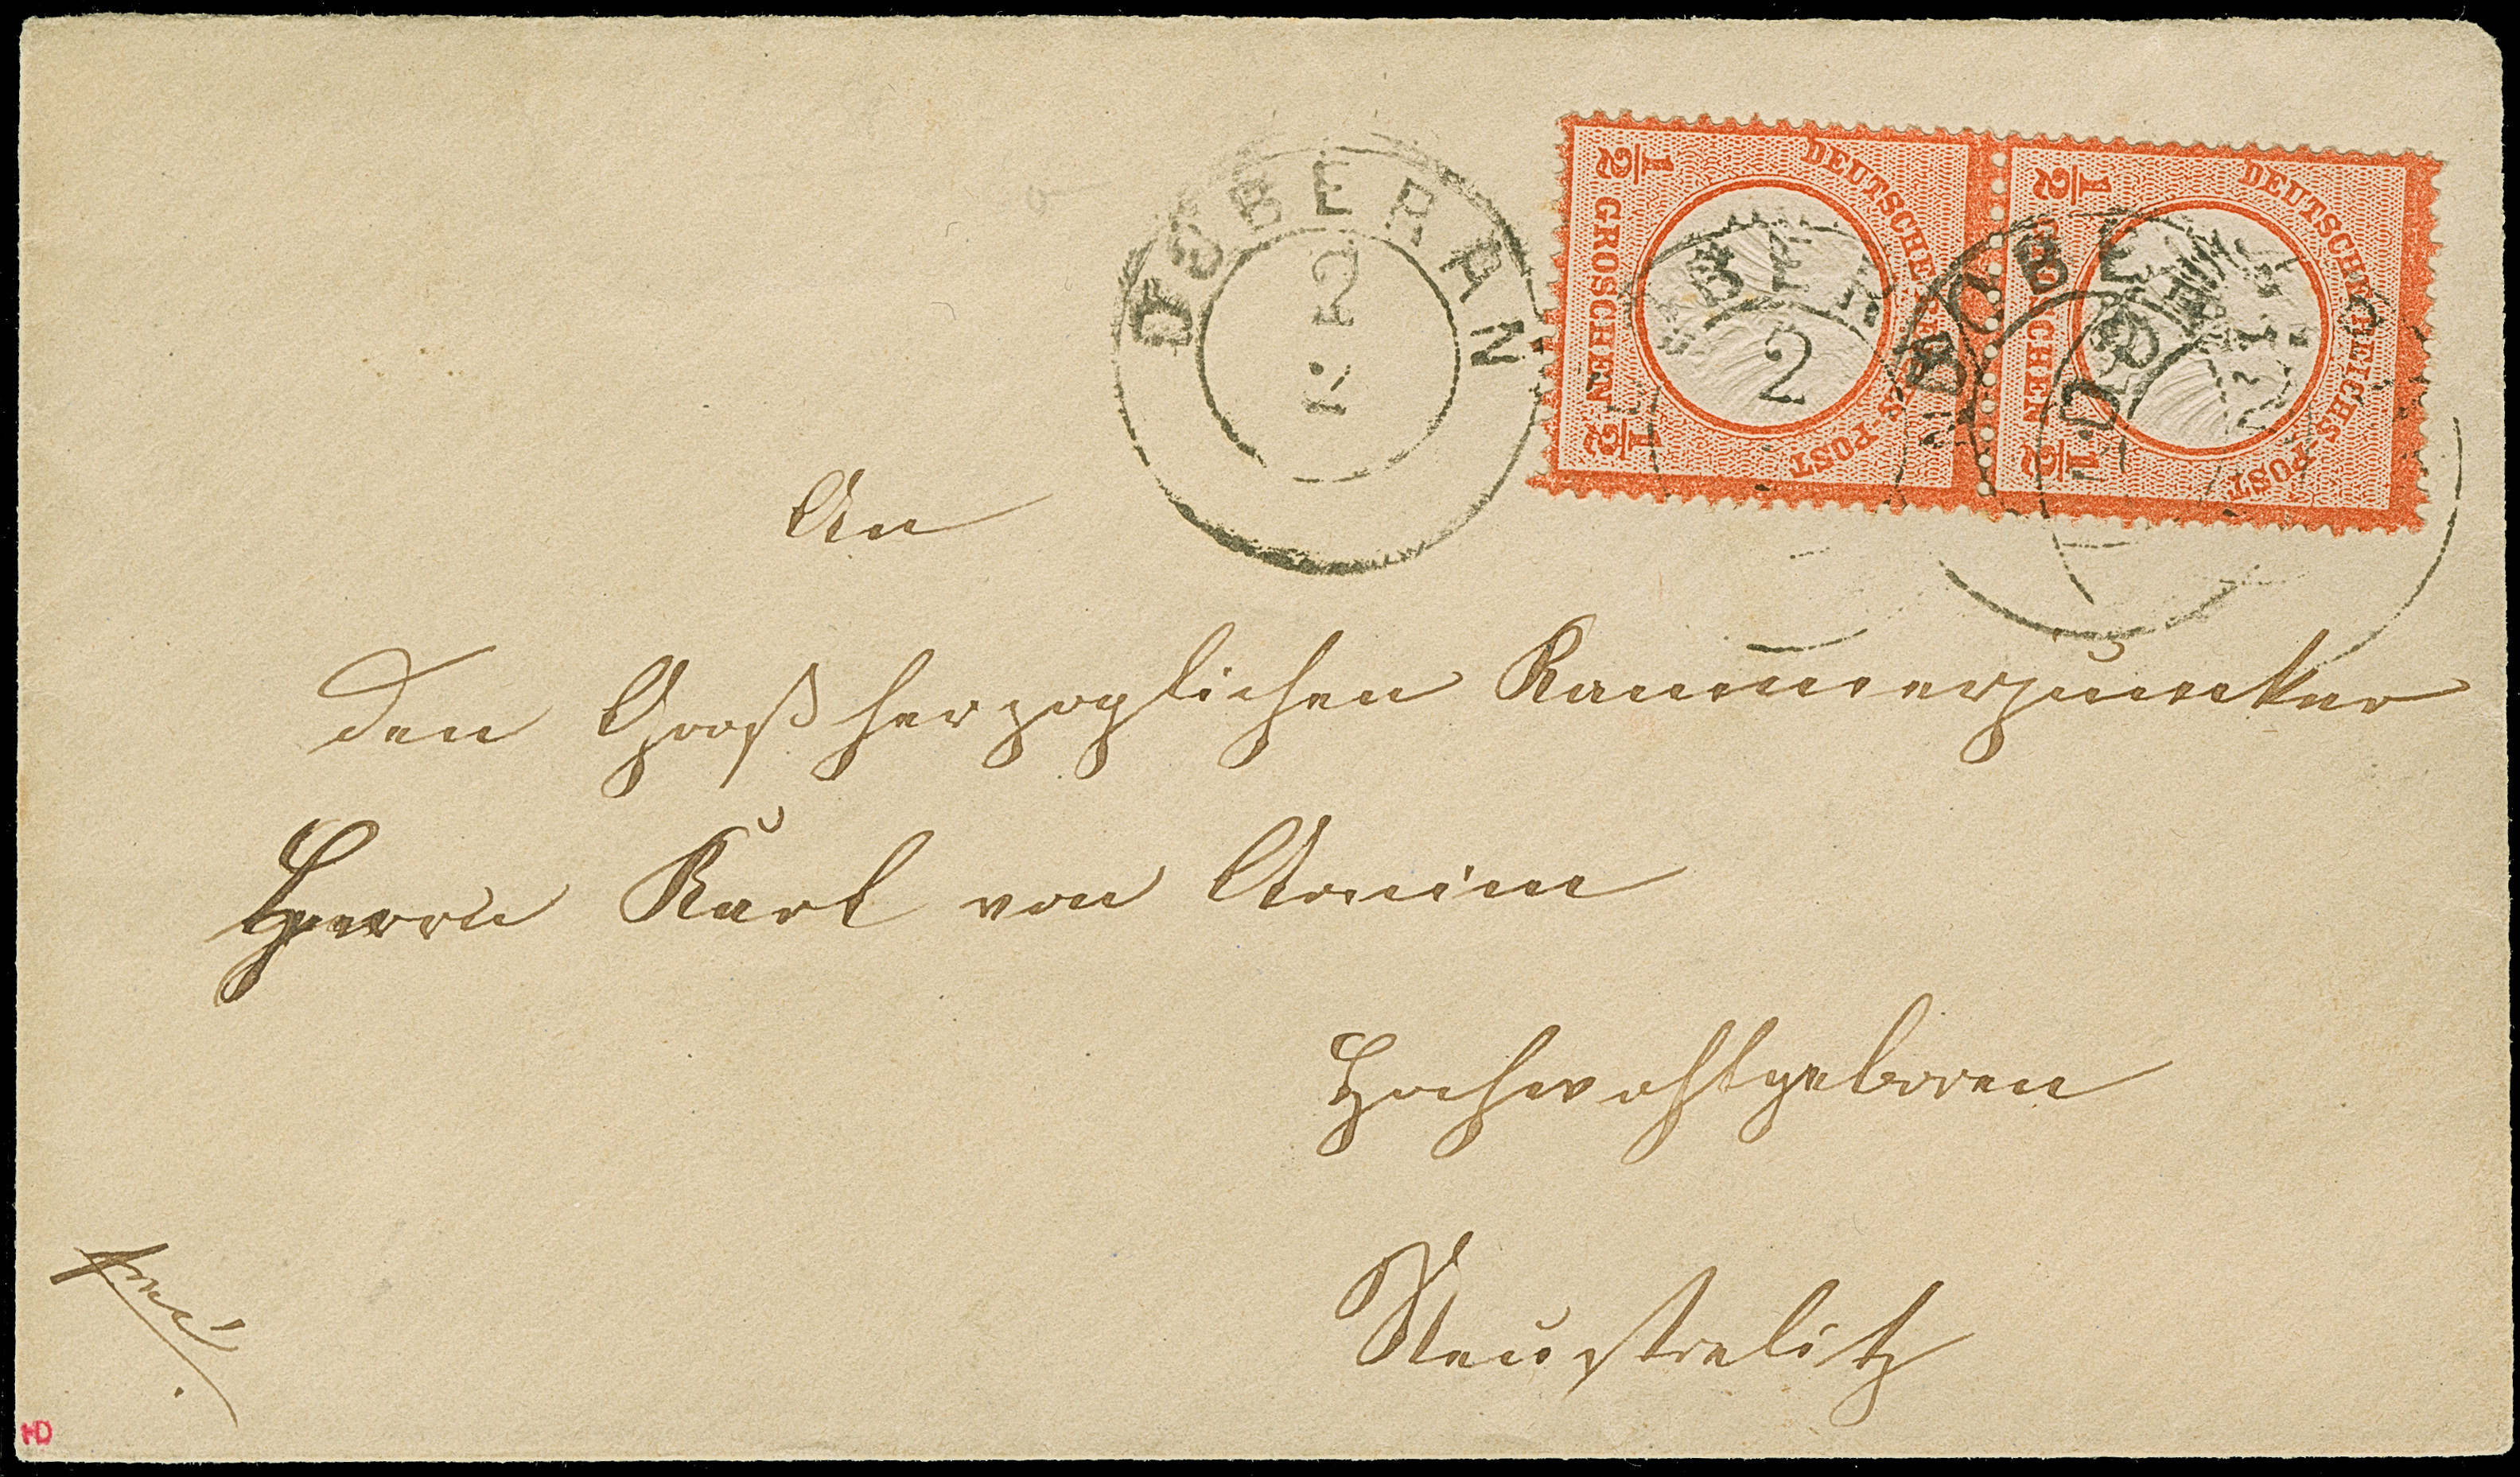 DOBERAN
2
2
DEUTSCHE REICHS-POST
1/2 GROSCHEN 1/2
DEUTSCHE REICHS-POST
1/2 GROSCHEN 1/2
An
den Großherzoglichen Kammerjuncker
Herrn Karl von Arnim
Hochwohlgeboren
Neustrelitz
HD